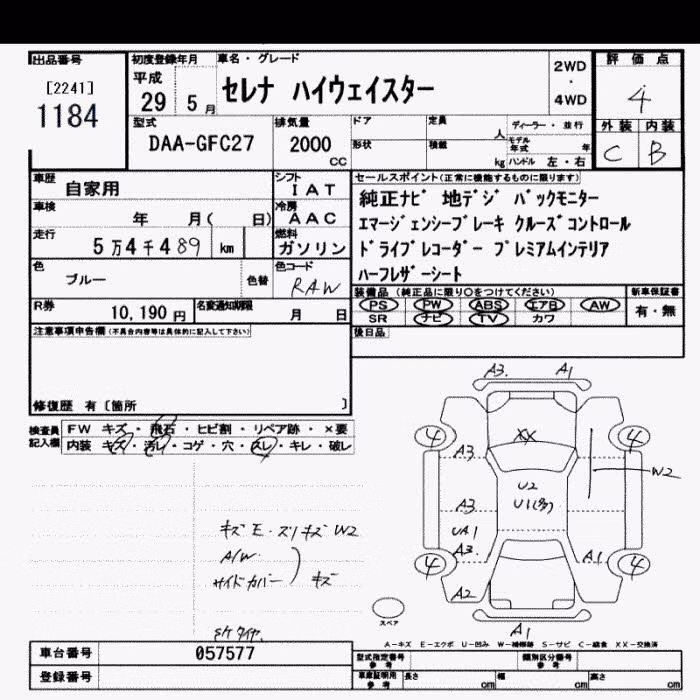 出品番号
[2241]
1184
初度登録年月
平成
29 5 月
車名・グレード
セレナ ハイウェイスター
2WD
・
4WD
評価点
4
外装 内装
C B
型式
DAA-GFC27
排気量
2000
cc
ドア
形状
定員
人
積載
kg
ディーラー・並行
モデル年式 年
ハンドル 左・右
車歴
自家用
車検
年 月( 日)
走行
5万4千489 km
色
ブルー
色替
シフト
IAT
冷房
AAC
燃料
ガソリン
色コード
RAW
R券
10,190 円
名変通知期限
月 日
セールスポイント(正常に機能するものに限ります)
純正ナビ 地デジ バックモニター
エマージェンシーブレーキ クルーズコントロール
ドライブレコーダー プレミアムインテリア
ハーフレザーシート
装備品 (純正品に限り〇をつけてください)
新車保証書
PS PW ABS エアB AW
有・無
SR ナビ TV カワ
後日品
注意事項申告欄(不具合内容等は具体的に記入して下さい)
修復歴 有〔箇所 〕
検査員
記入欄
FW キズ・飛石・ヒビ割・リペア跡・×要
内装 キズ・汚レ・コゲ・穴・スレ・キレ・破レ
キズ E・ズリキズ W2
A/W
サイドカバー ) キズ
A3 A1
4 4
XX
A3
W2
U2
A3
U1(多)
UA1
A3 A1
4 4
A2
スペア
A1
A-キズ E-エクボ U-凹み W-補修跡 S-サビ C-腐食 XX-交換済
車台番号
057577
登録番号
型式指定番号
参考
類別区分番号
参考
車庫証明用
参考
長さ cm
幅 cm
高さ cm